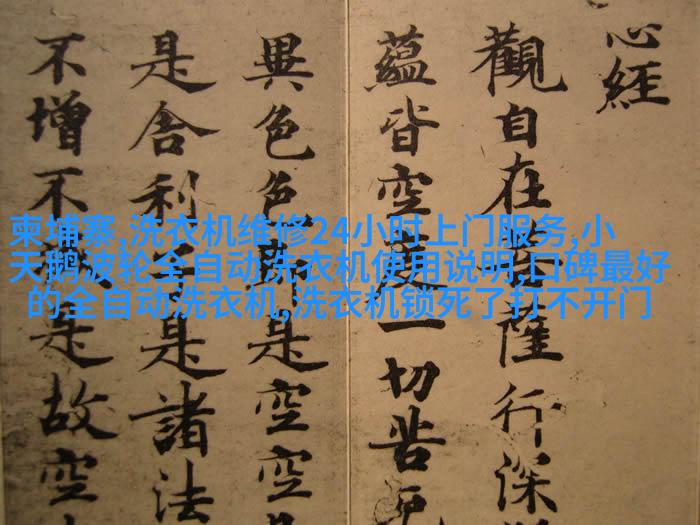 心經
觀自在菩薩行深
蘊皆空度一切苦厄
異色色即是空空
是舍利子是諸法
不增不減是故空
柬埔寨,洗衣机维修24小时上门服务,小
天鹅波轮全自动洗衣机使用说明,口碑最好
的全自动洗衣机,洗衣机锁死了打不开门